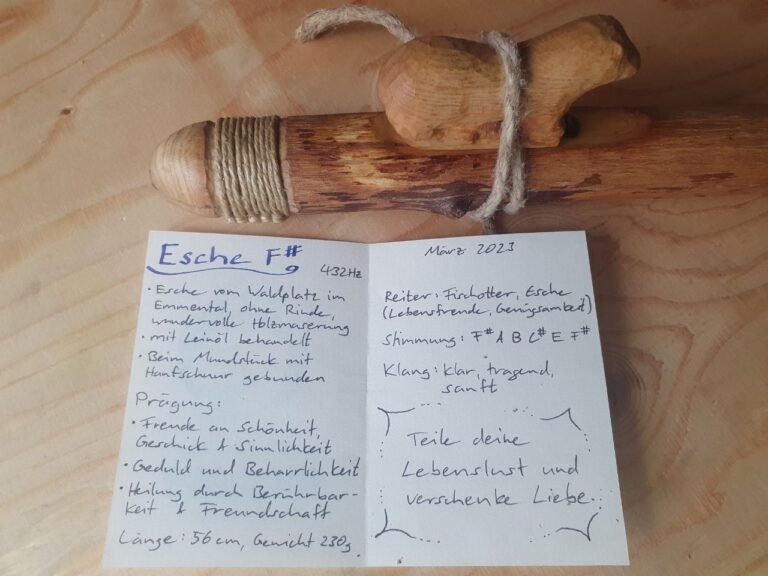 Esche F#
432Hz
• Esche vom Waldplatz im
Emmental, ohne Rinde,
wundervolle Holzmaserung
• mit Leinöl behandelt
• Beim Mundstück mit
Hanfschnur gebunden
Prägung:
• Freude an Schönheit,
Geschick & Sinnlichkeit
• Geduld und Beharrlichkeit
• Heilung durch Berührbar-
keit & Freundschaft
Länge: 56 cm, Gewicht 230g
März 2023
Reiter: Fischotter, Esche
(Lebensfreude, Genügsamkeit)
Stimmung: F# A B C# E F#
Klang: klar, tragend,
sanft
Teile deine
Lebenslust und
verschenke Liebe.